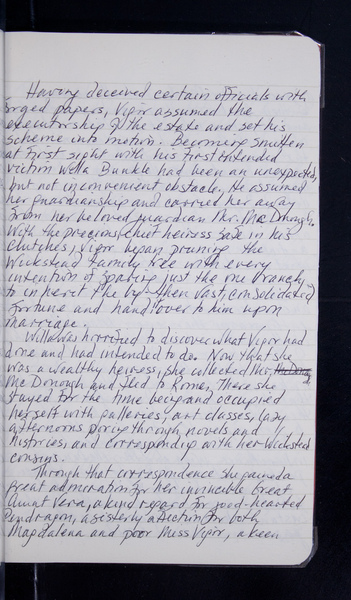 Having deceived certain officials with
forged papers, Vigor assumed the
executorship of the estate and set his
scheme into motion. Becoming smitten
at first sight with his first intended
victim Willa Bunkle had been an unexpected,
but not inconvenient obstacle. He assumed
her guardianship and carried her away
from her beloved guardian Mr. McDonough.
With the precious chief heiress safe in his
clutches, Vigor began pruning the
Wickstead family tree with every
intention of sparing just the one branch
to inherit the by-then vast, consolidated
fortune and hand over to him upon
marriage.
Willa was horrified to discover what Vigor had
done and had intended to do. Now that she
was a wealthy heiress, she collected Mr.
McDonough and fled to Rome, There she
stayed for the time being and occupied
herself with galleries, art classes, lazy
afternoons poring through novels and
histories, and corresponding with her Wickstead
cousins.
Through that correspondence she gained a
great admiration for her invincible Great
Aunt Vera, a kind regard for good-hearted
Pendragon, a sisterly affection for both
Magdalena and poor Miss Vigor, a keen